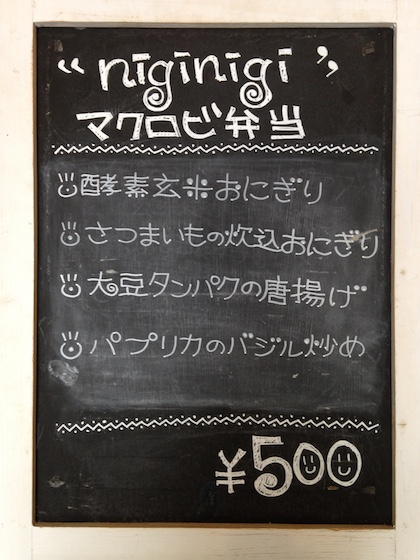 “niginigi”
マクロビ弁当
酵素玄米おにぎり
さつまいもの炊込おにぎり
大豆タンパクの唐揚げ
パプリカのバジル炒め
¥500